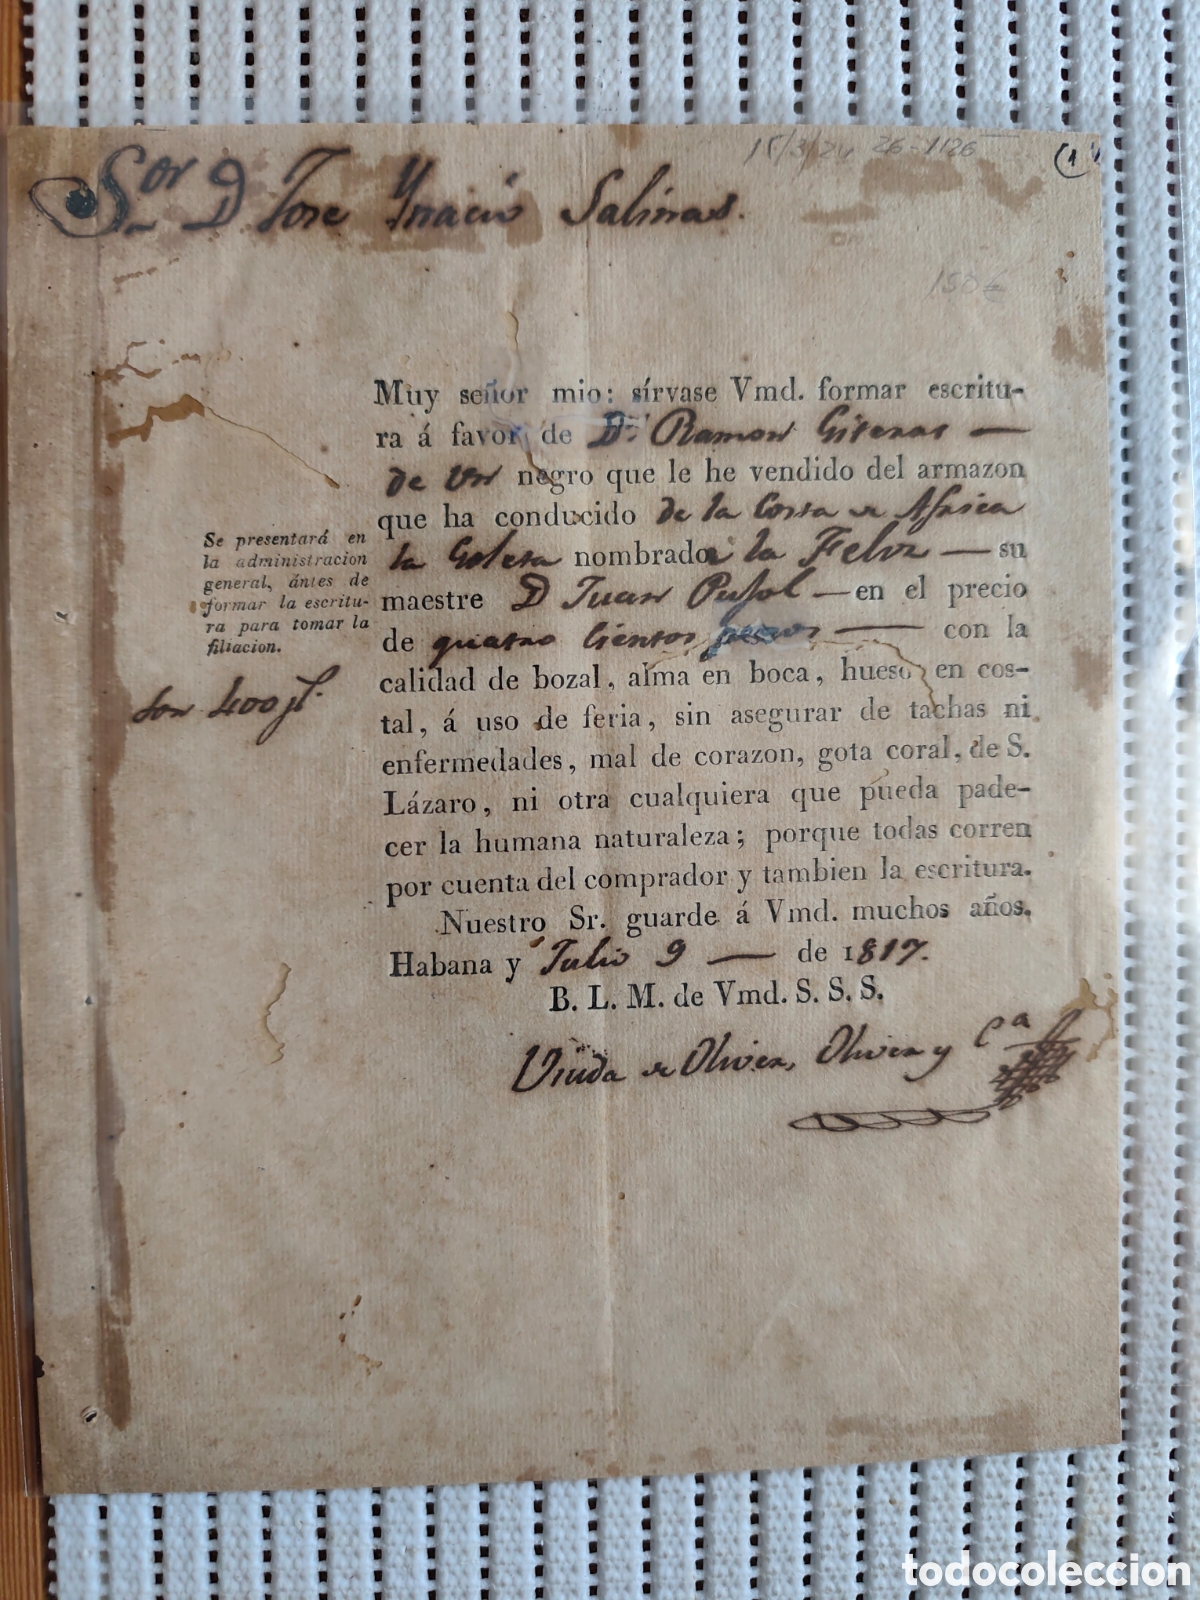 15/3/24 26-1126
(1
Sor. D Jose Ynacio Salinas.
150€
Muy señor mio: sírvase Vmd. formar escritu-
ra á favor de Dn. Ramon Giteras —
de Un negro que le he vendido del armazon
que ha conducido de la Costa de Africa
la Goleta nombrada la Feliz — su
maestre D Juan Pujol — en el precio
de quatro Cientos pesos — con la
calidad de bozal, alma en boca, hueso en cos-
tal, á uso de feria, sin asegurar de tachas ni
enfermedades, mal de corazon, gota coral, de S.
Lázaro, ni otra cualquiera que pueda pade-
cer la humana naturaleza; porque todas corren
por cuenta del comprador y tambien la escritura.
Nuestro Sr. guarde á Vmd. muchos años.
Habana y Julio 9 — de 1817.
B. L. M. de Vmd. S. S. S.
Viuda de Oliver, Oliver y Ca
Se presentará en
la administracion
general, ántes de
formar la escritu-
ra para tomar la
filiacion.
Son 400 ps.
todocoleccion